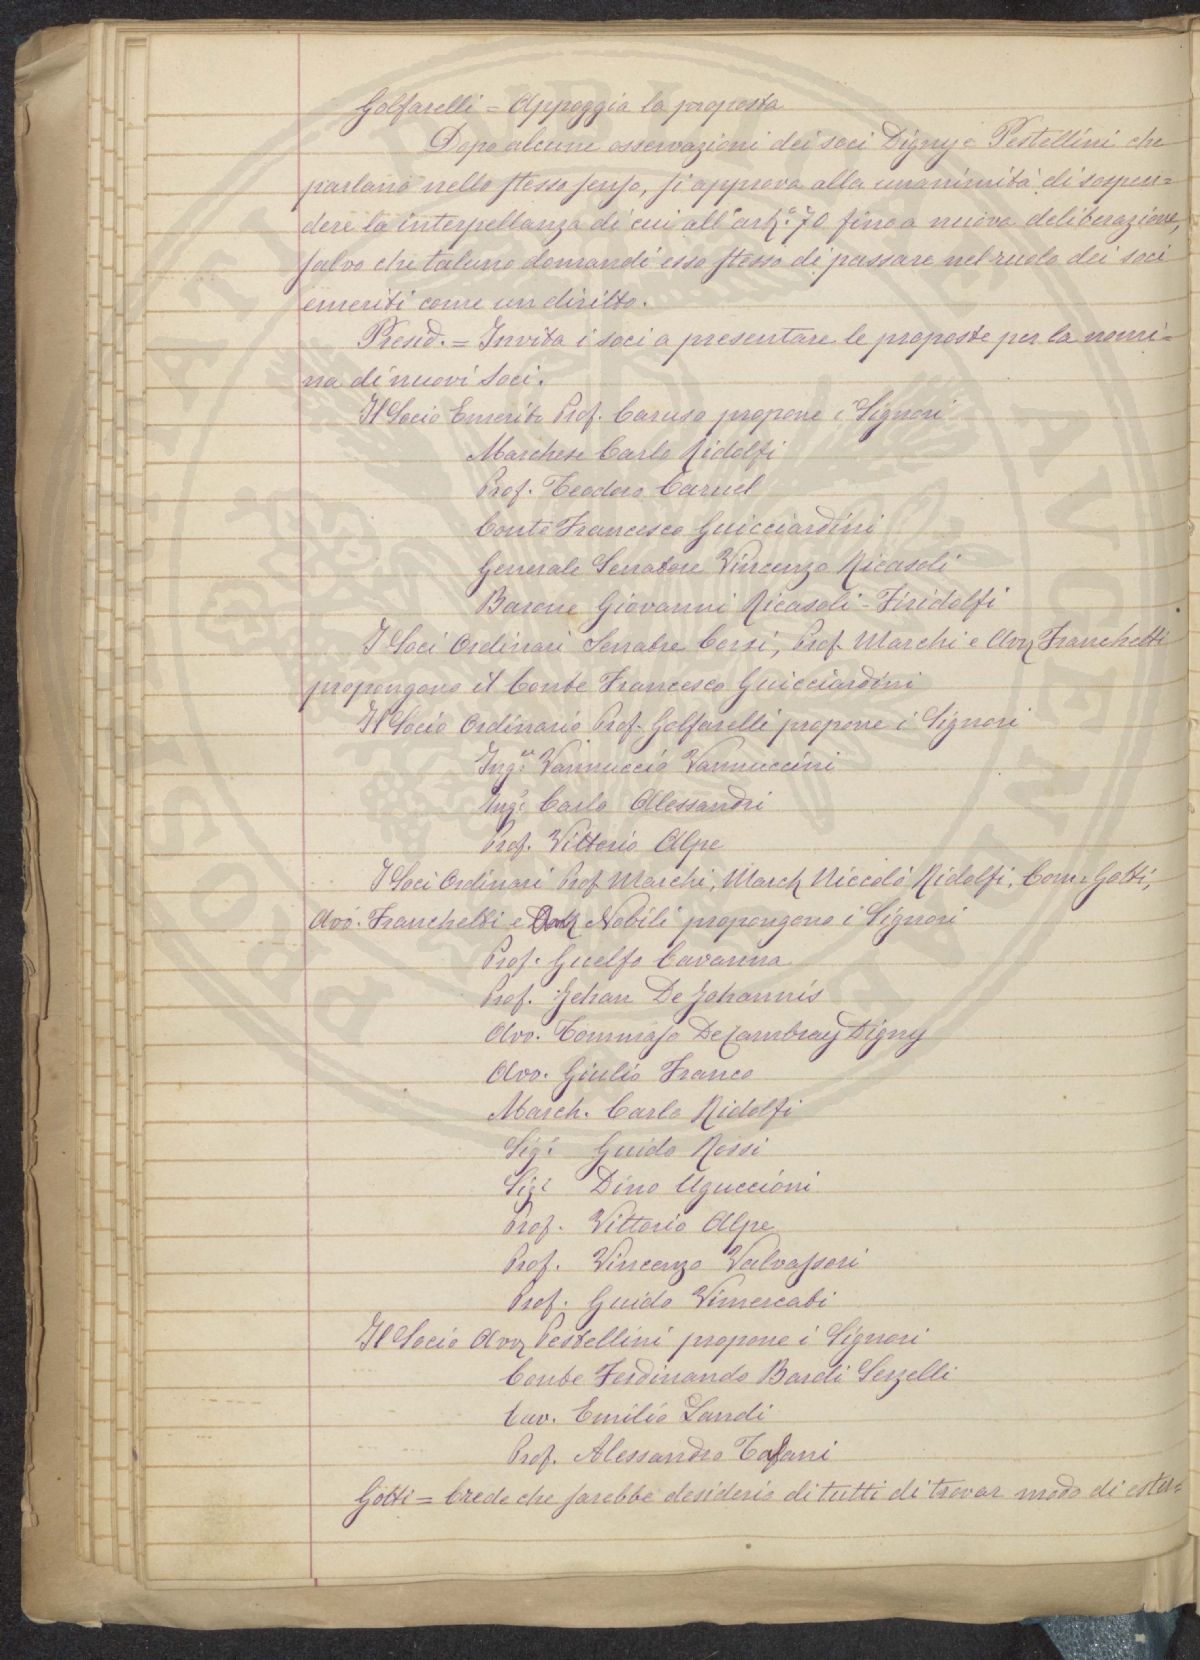 Golfarelli = Appoggia la proposta
Dopo alcune osservazioni dei soci Digny e Pestellini che
parlano nello stesso senso, si approva alla unanimità di sospen=
dere la interpellanza di cui all'art.º 70 fino a nuova deliberazione,
salvo che taluno domandi esso stesso di passare nel ruolo dei soci
emeriti come un diritto.
Presid. = Invita i soci a presentare le proposte per la nomi=
na di nuovi soci.
Il Socio Emerito Prof. Caruso propone i Signori
Marchese Carlo Ridolfi
Prof. Teodoro Caruel
Conte Francesco Guicciardini
Generale Senatore Vincenzo Ricasoli
Barone Giovanni Ricasoli-Firidolfi
I Soci Ordinari Senatore Corsi, Prof. Marchi e Avv. Franchetti
propongono il Conte Francesco Guicciardini
Il Socio Ordinario Prof. Golfarelli propone i Signori
Ing.re Vannuccio Vannuccini
Ing.e Carlo Alessandri
Prof. Vittorio Alpe
I Soci Ordinari Prof. Marchi, March. Niccolò Ridolfi, Com. Gotti,
Avv. Franchetti e Dott. Nobili propongono i Signori
Prof. Guelfo Cavanna
Prof. Jehan De Johannis
Avv. Tommaso De Cambray Digny
Avv. Giulio Franco
March. Carlo Ridolfi
Sig.r Guido Rossi
Sig.r Dino Uguccioni
Prof. Vittorio Alpe
Prof. Vincenzo Valvassori
Prof. Guido Vimercati
Il Socio Avv. Pestellini propone i Signori
Conte Ferdinando Bardi Serzelli
Cav. Emilio Landi
Prof. Alessandro Tafani
Gotti = Crede che sarebbe desiderio di tutti di trovar modo di ester=